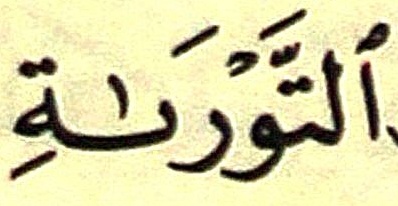 ٱلتَّوْرَىٰةِ